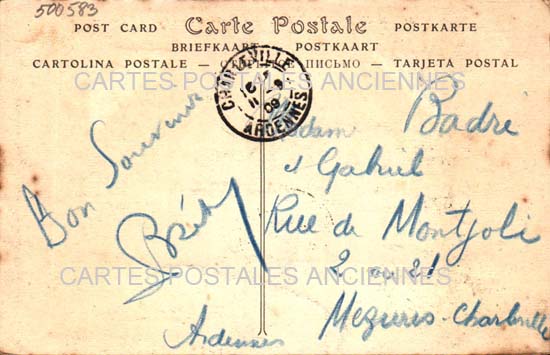 500583
POST CARD Carte Postale POSTKARTE
BRIEFKAART POSTKAART
CARTOLINA POSTALE — ПИСЬМО — TARJETA POSTAL
CARTES POSTALES ANCIENNES
CHARLEVILLE
ARDENNES
Bon Souvenir
Madam Badré
Gabriel
Rue de Montjoli
2 ou 21
CARTES POSTALES ANCIENNES
Mezieres-Charleville
Ardennes